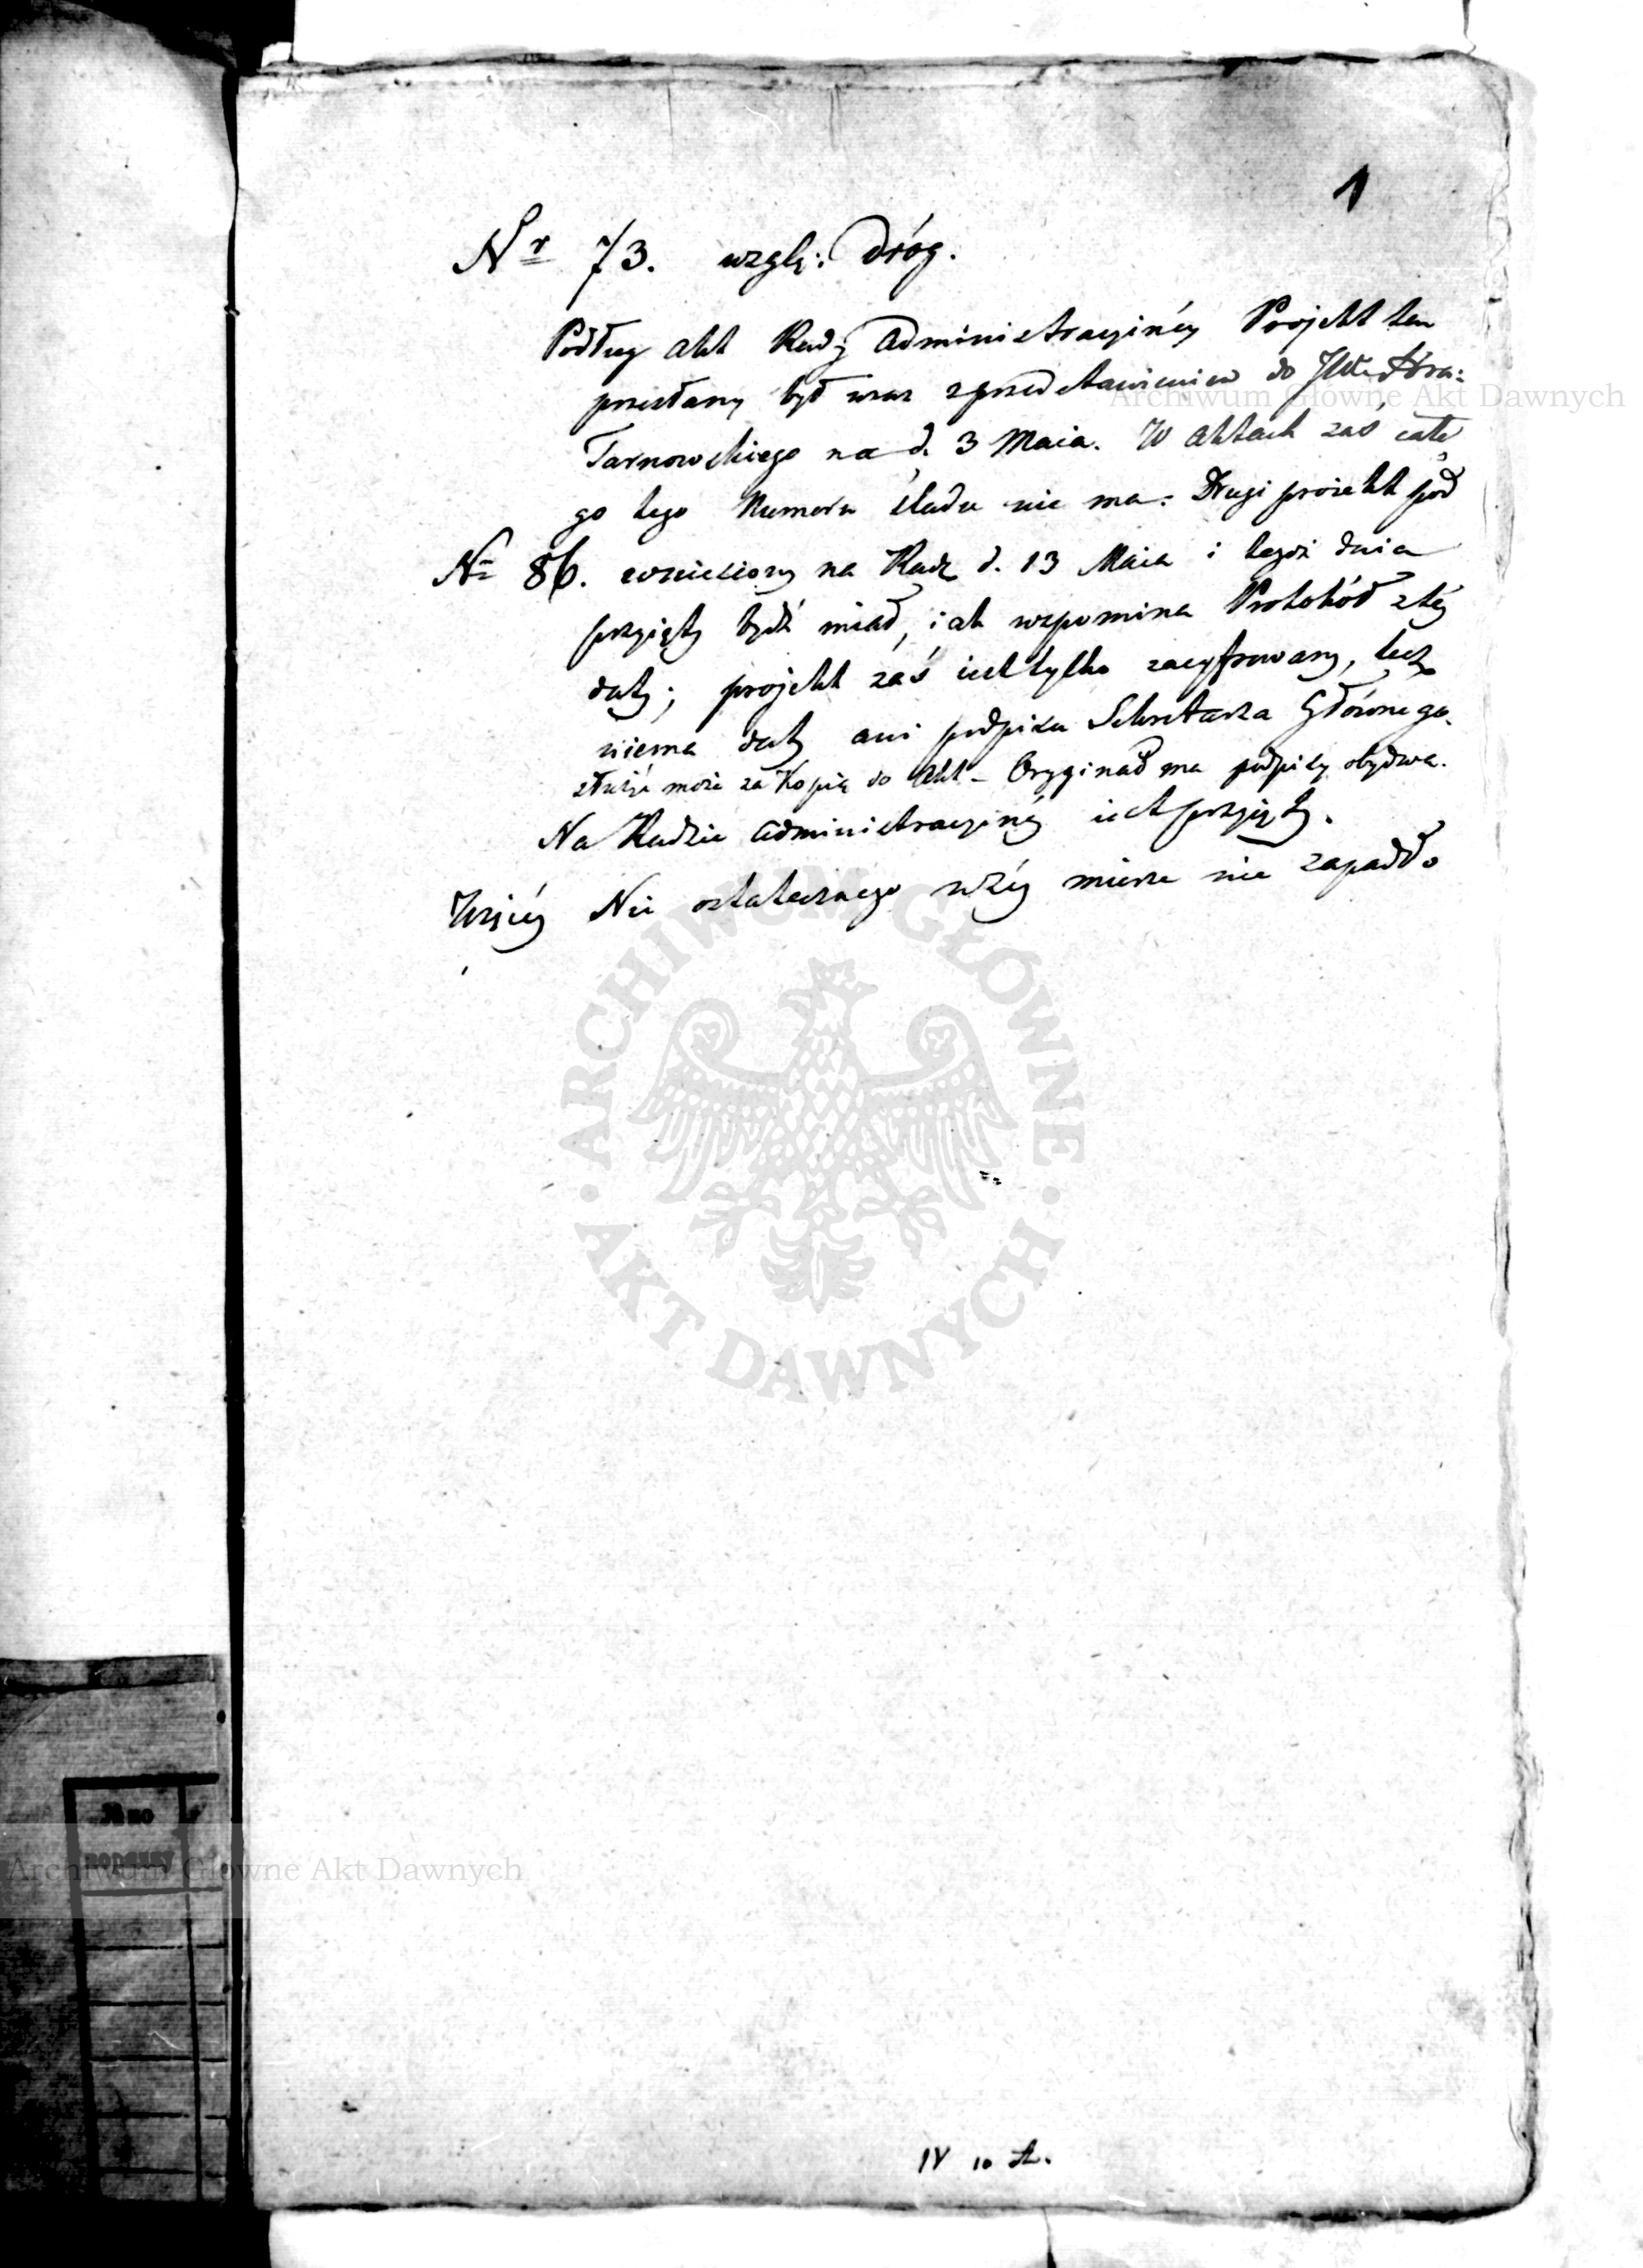 1
Nr 73. wzglę: Dróg.
Podług akt Rady Administracyinéy Projekt ten
przesłany był wraz zprzedstawieniem do JW. Hra:
Tarnowskiego na d. 3 Maia. W aktach zaś całe
go tego Numeru śladu nie ma. Drugi projekt pod
Nr 86. wniesiony na Radę d. 13 Maia i tegoż dnia
przyięty bydź miał, iak wspomina Protokół ztéy
daty; projekt zaś iest tylko zacyfrowany, lecz
niema daty ani podpisu Sekretarza Głównego.
służyć może za Kopią do Akt - Oryginał ma podpisy obydwa.
Na Radzie Administracyinéy iest przyięty.
Więcéy Nic ostatecznego wtéy mierze nie zapadło
IV 10
Archiwum Główne Akt Dawnych
ARCHIWUM GŁÓWNE
AKT DAWNYCH
Archiwum Główne Akt Dawnych